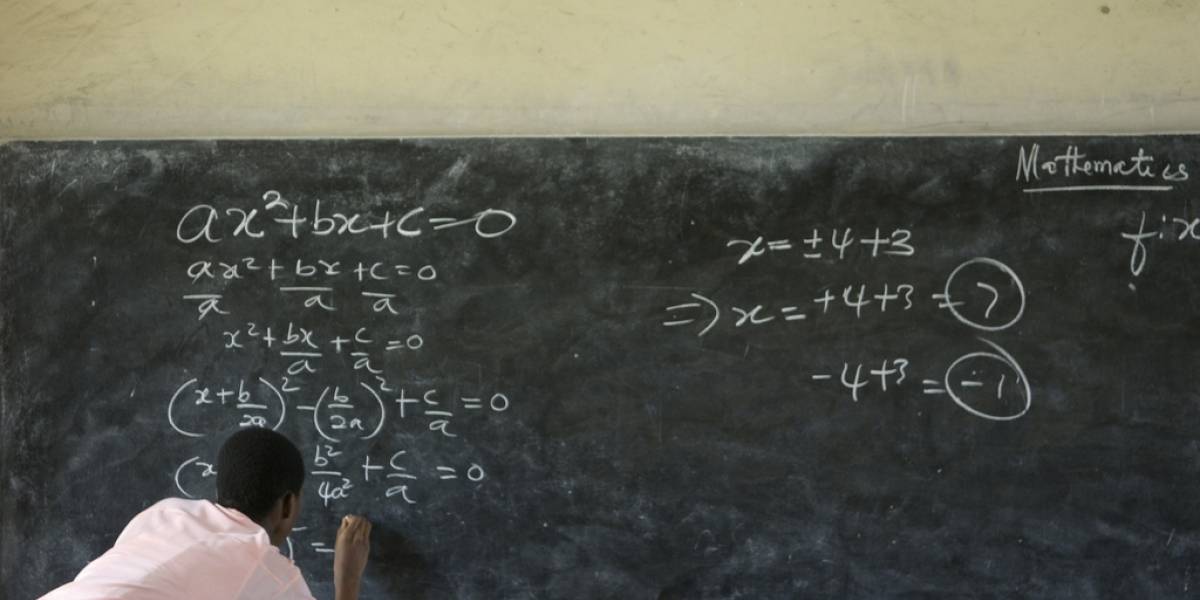 Mathematics
ax²+bx+c=0
ax²/a + bx/a + c/a = 0
x²+bx/a + c/a = 0
(x+b/2a)² - (b/2a)² + c/a = 0
(x b²/4a² + c/a = 0
=
x = ±4+3
⇒ x = +4+3 = 7
-4+3 = -1